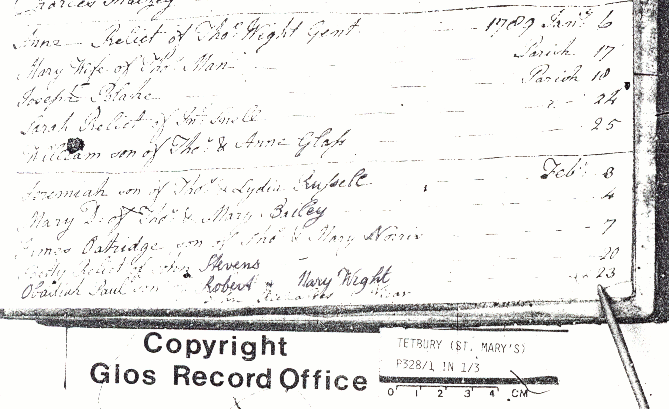 Anne Relict of Thos Wight Gent 1789 Jany 6
Mary Wife of Thos Man Parish 17
Joseph Blake Parish 18
Sarah Relict of Jno Snell 24
William son of Thos & Anne Glass 25
Jeremiah son of Thos & Lydia Russell Feby 3
Mary D. of Jos & Mary Bailey 4
James Oatridge son of Thos & Mary Norris 7
Relict of John Stevens 20
Obadiah Paul son Robert & Mary Wight 23
Copyright
Glos Record Office
TETBURY (ST. MARY'S)
P328/1 IN 1/3
0 1 2 3 4 CM